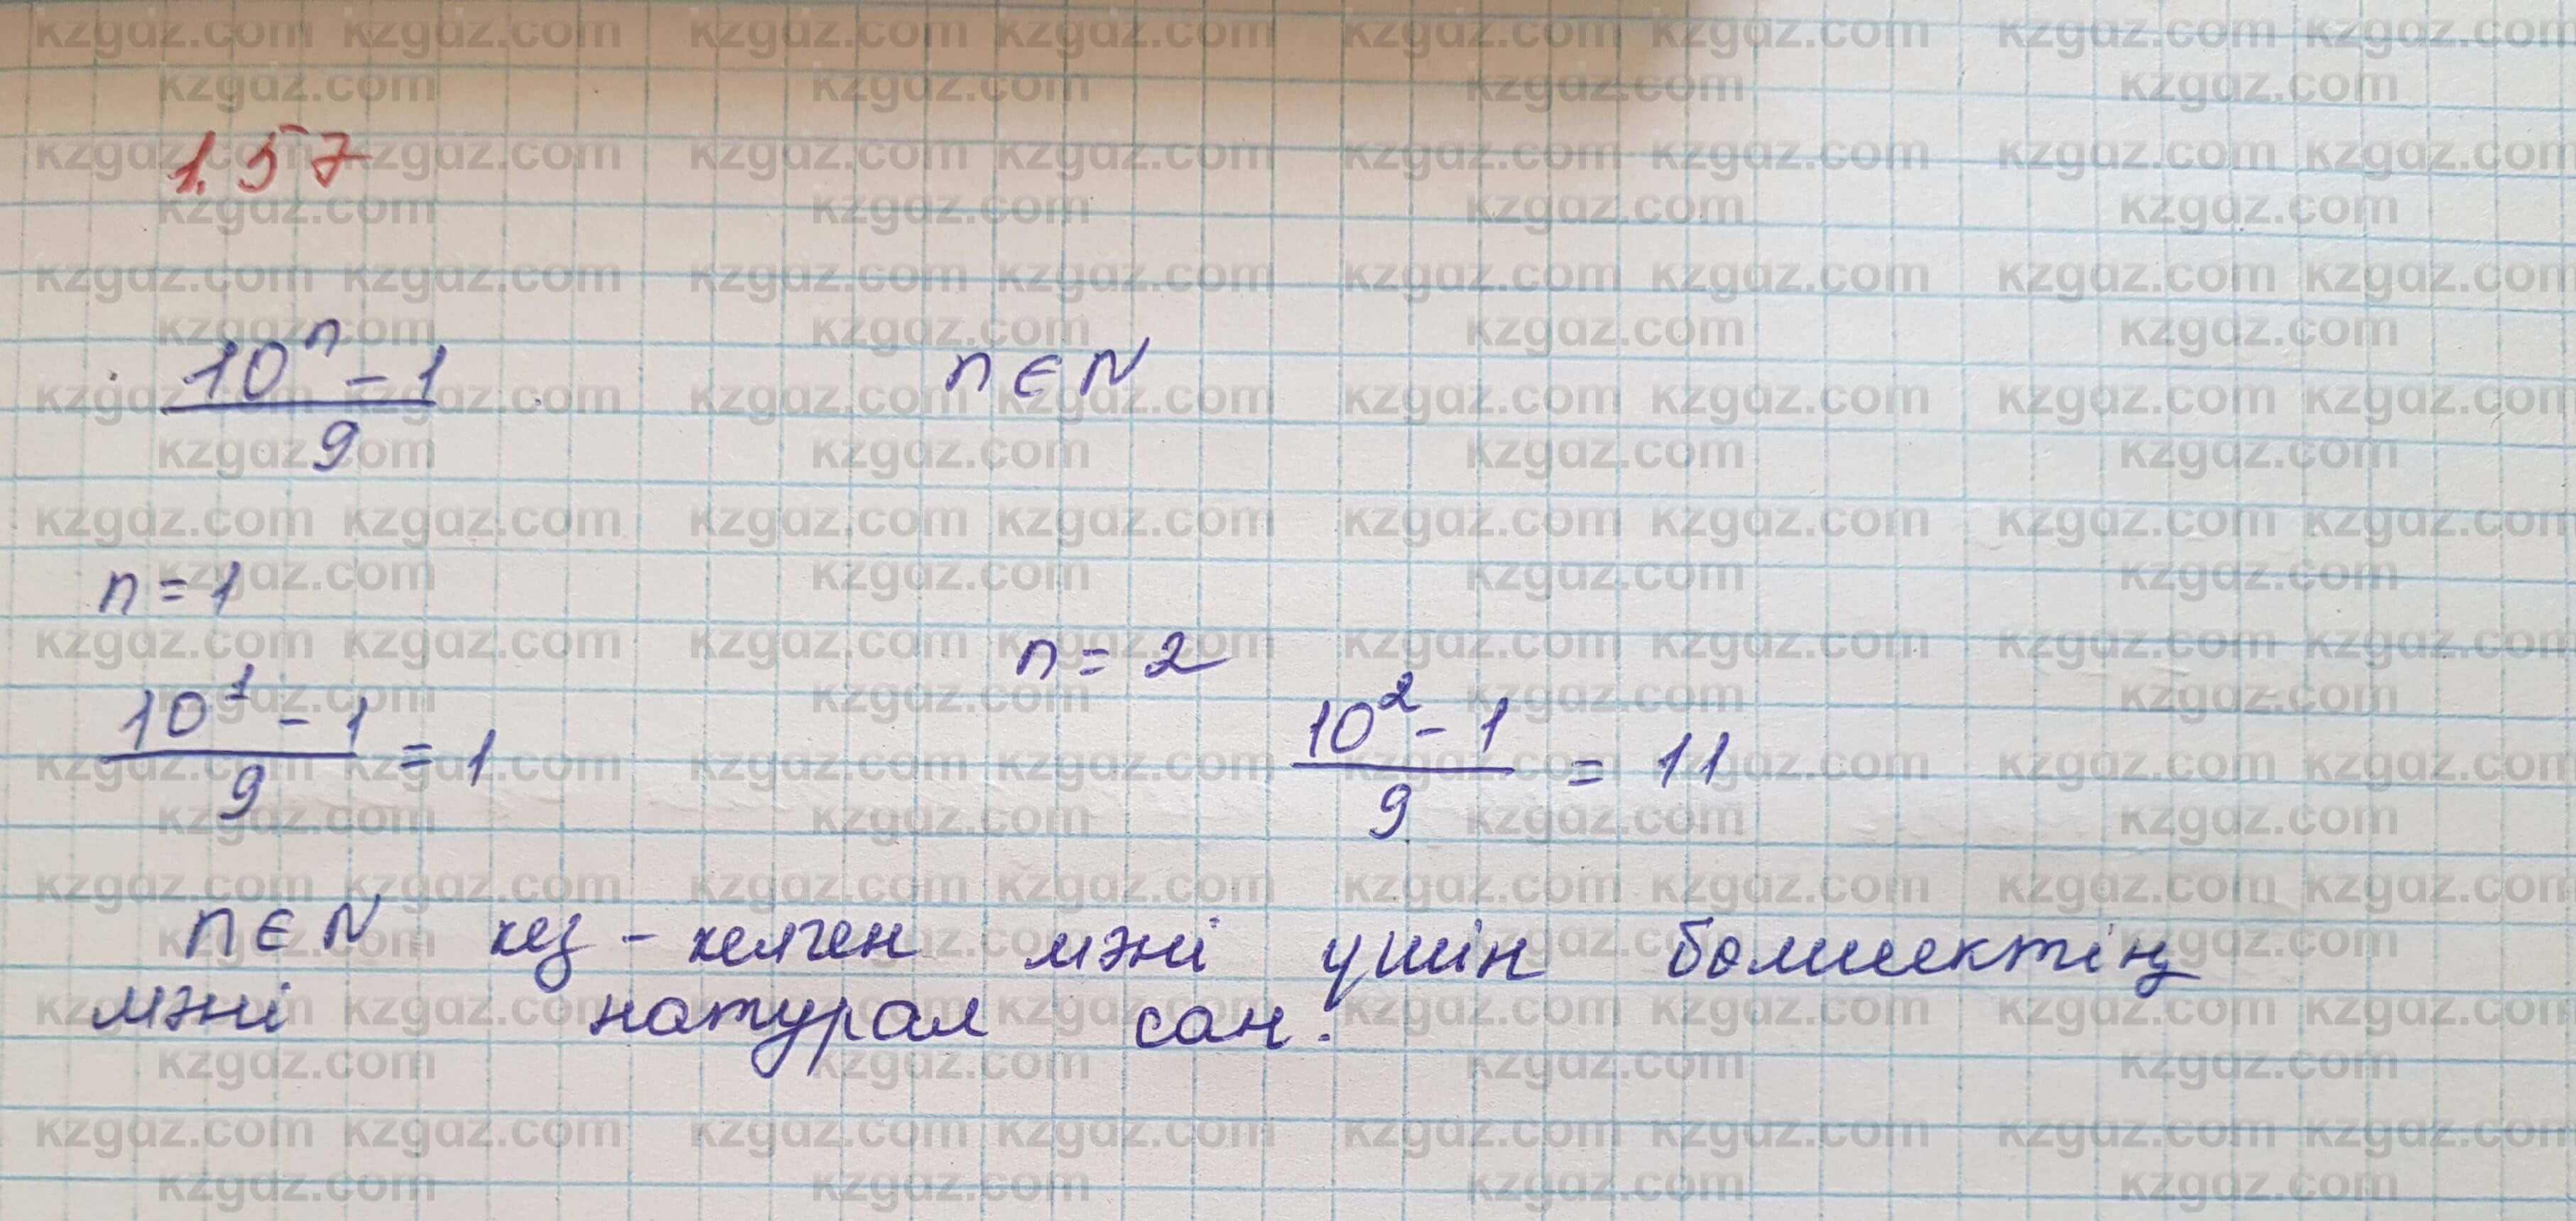 1.57
10ⁿ - 1 / 9 n ∈ N
n = 1
n = 2
10¹ - 1 / 9 = 1 10² - 1 / 9 = 11
n ∈ N кез - келген мәні үшін бөлшектің
мәні натурал сан.
kzgdz.com